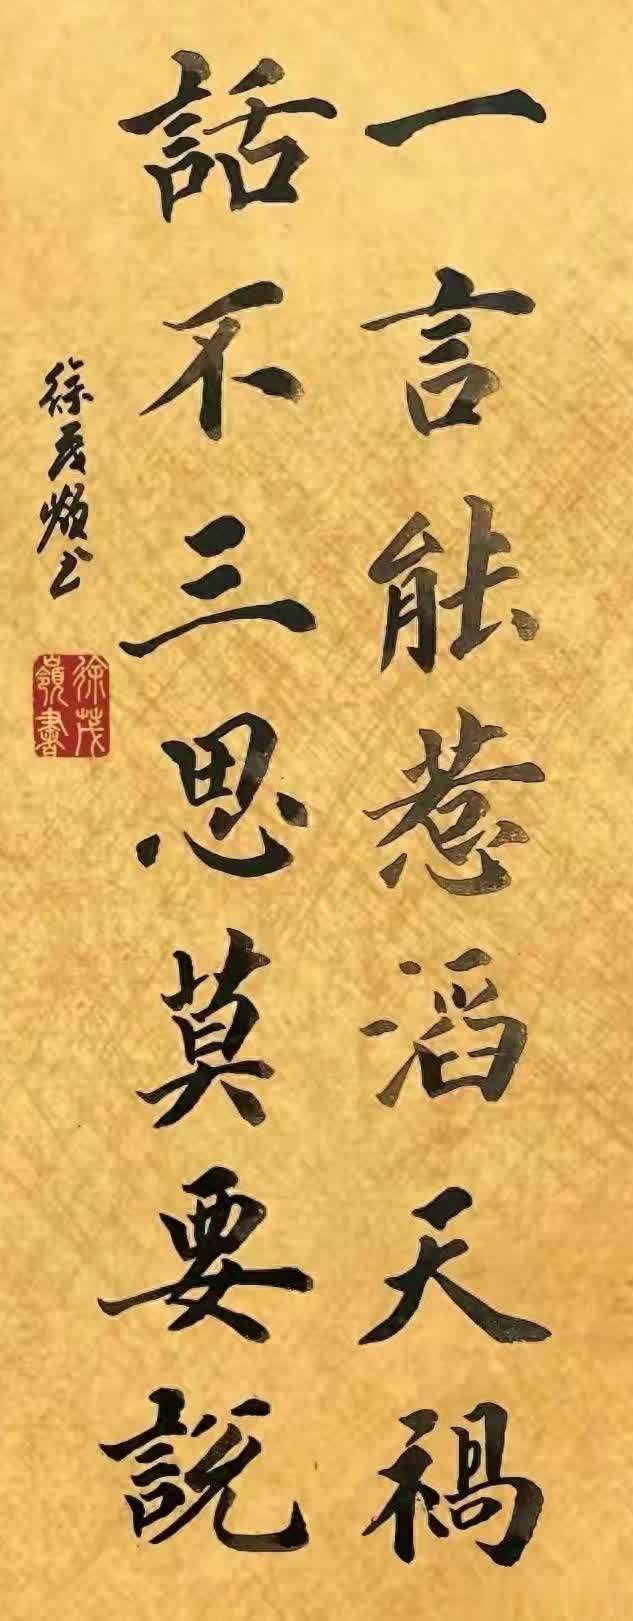 一言能惹滔天禍
話不三思莫要説
徐茂嶺书
徐茂嶺書